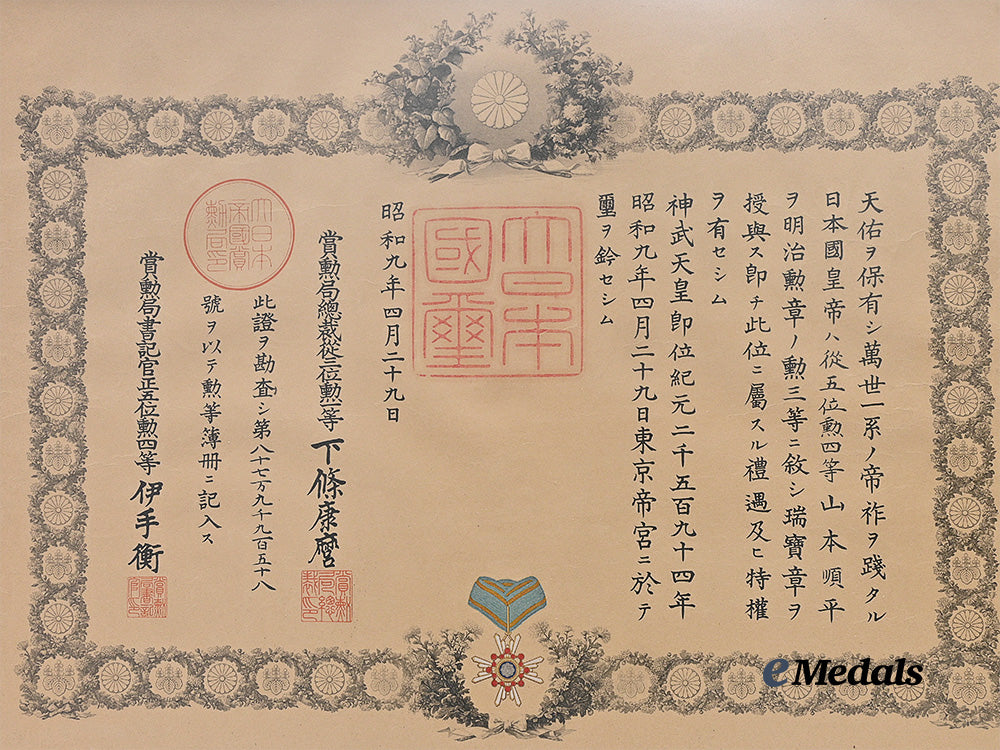 天佑ヲ保有シ萬世一系ノ帝祚ヲ踐タル
日本國皇帝ハ從五位勲四等山本順平
ヲ明治勲章ノ勲三等ニ敘シ瑞寶章ヲ
授與ス卽チ此位ニ屬スル禮遇及ヒ特權
ヲ有セシム
神武天皇卽位紀元二千五百九十四年
昭和九年四月二十九日東京帝宮ニ於テ
璽ヲ鈐セシム
大日本
國璽
昭和九年四月二十九日
賞勲局總裁從三位勲一等 下條康麿
賞勲局總裁印
大日本
帝國賞
勲局印
此證ヲ勘査シ第八十七万九千九百五十八
號ヲ以テ勲等簿冊ニ記入ス
賞勲局書記官正五位勲四等 伊手衡
賞勲局書記官印
eMedals